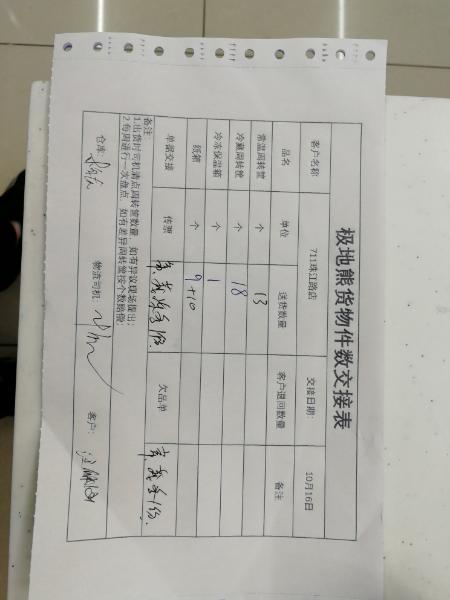 极地熊货物件数交接表
客户名称 711珠江路店 交接日期: 10月16日
品名 单位 送货数量 客户退回数量 备注
常温周转筐 个 13
冷藏周转筐 个 18
冷冻保温箱 个 1
纸箱 个 9+10
单据交接 传票 欠品单
备注
1.出货时司机请点周转筐数量,如有异议现场提出;
2.每周进行一次盘点,如有差异周转筐按个数赔偿;
仓库: 物流司机: 客户: